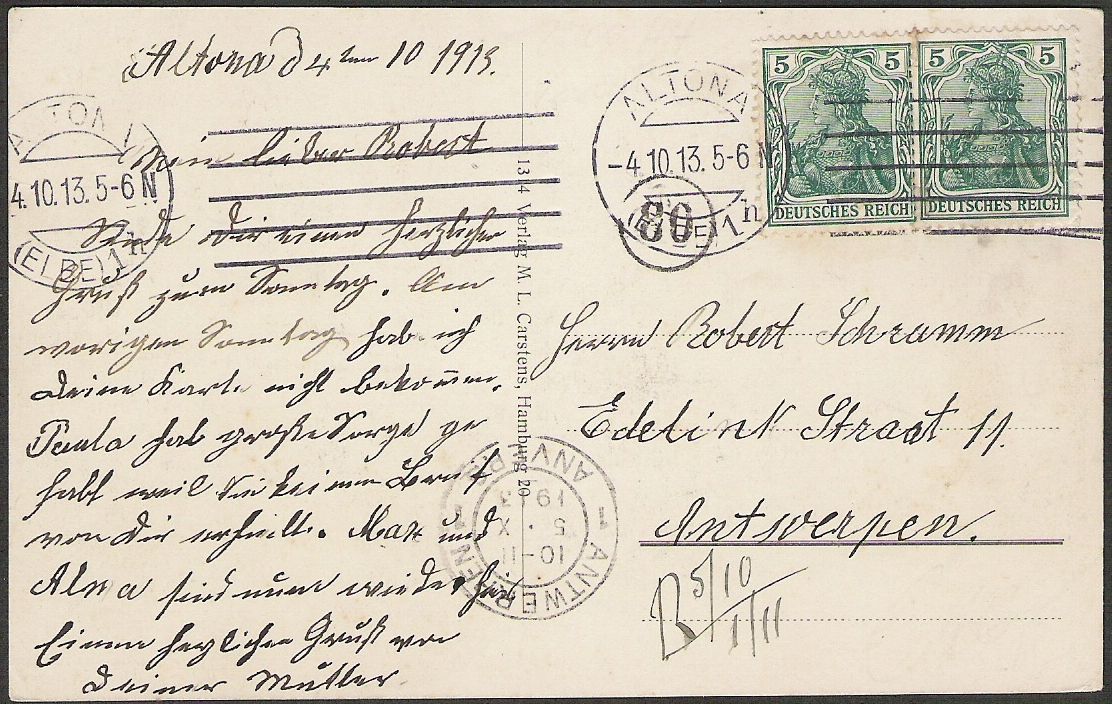 Altona d 4ten 10 1913.
Mein lieber Robert
Sende dir einen herzlichen
Gruß zum Sonntag. Am
vorigen Sonntag hab ich
deine Karte nicht bekommen.
Paula hab große Sorge ge
habt weil sie keinen Brief
von dir erhielt. Max und
Alma sind nun wieder hier
Einen herzlichen Gruß von
deiner Mutter
1334 Verlag M. L. Carstens, Hamburg 20
ALTONA
4.10.13.5-6 N
(ELBE) 1 h
ALTONA
-4.10.13.5-6 N
(ELBE) 1 h
80
5 5
DEUTSCHES REICH
5 5
DEUTSCHES REICH
Herrn Robert Schramm
Edelink Straat 11.
Antwerpen.
B 5/10
1/11
ANTWERPEN 1
10-11
5 X
1913
ANVERS